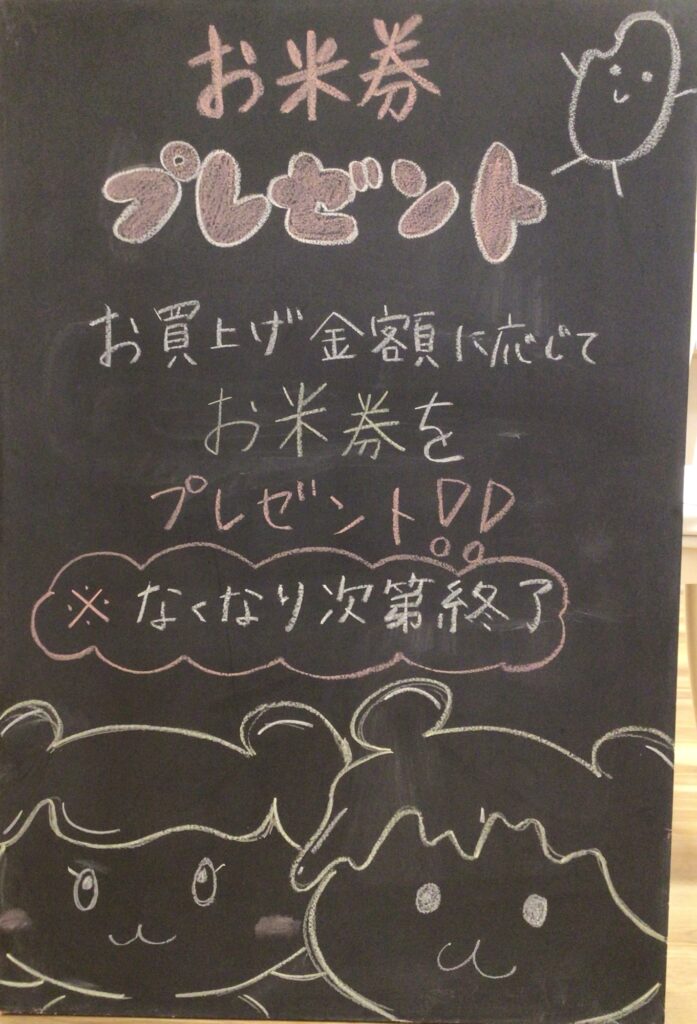 お米券
プレゼント
お買上げ金額に応じて
お米券を
プレゼント!!
※なくなり次第終了